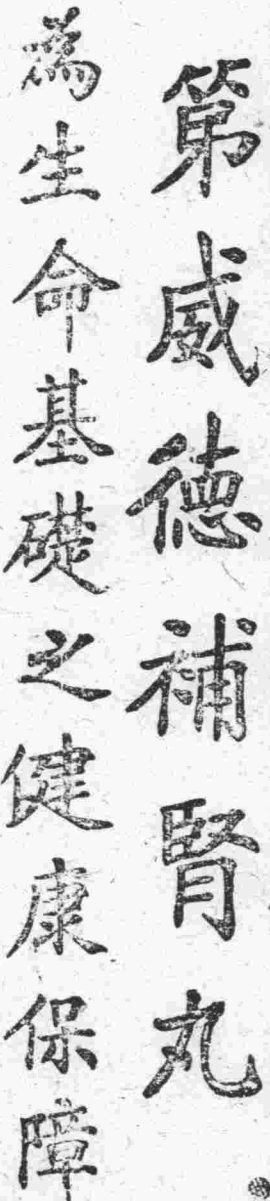 第威德補腎丸
為生命基礎之健康保障